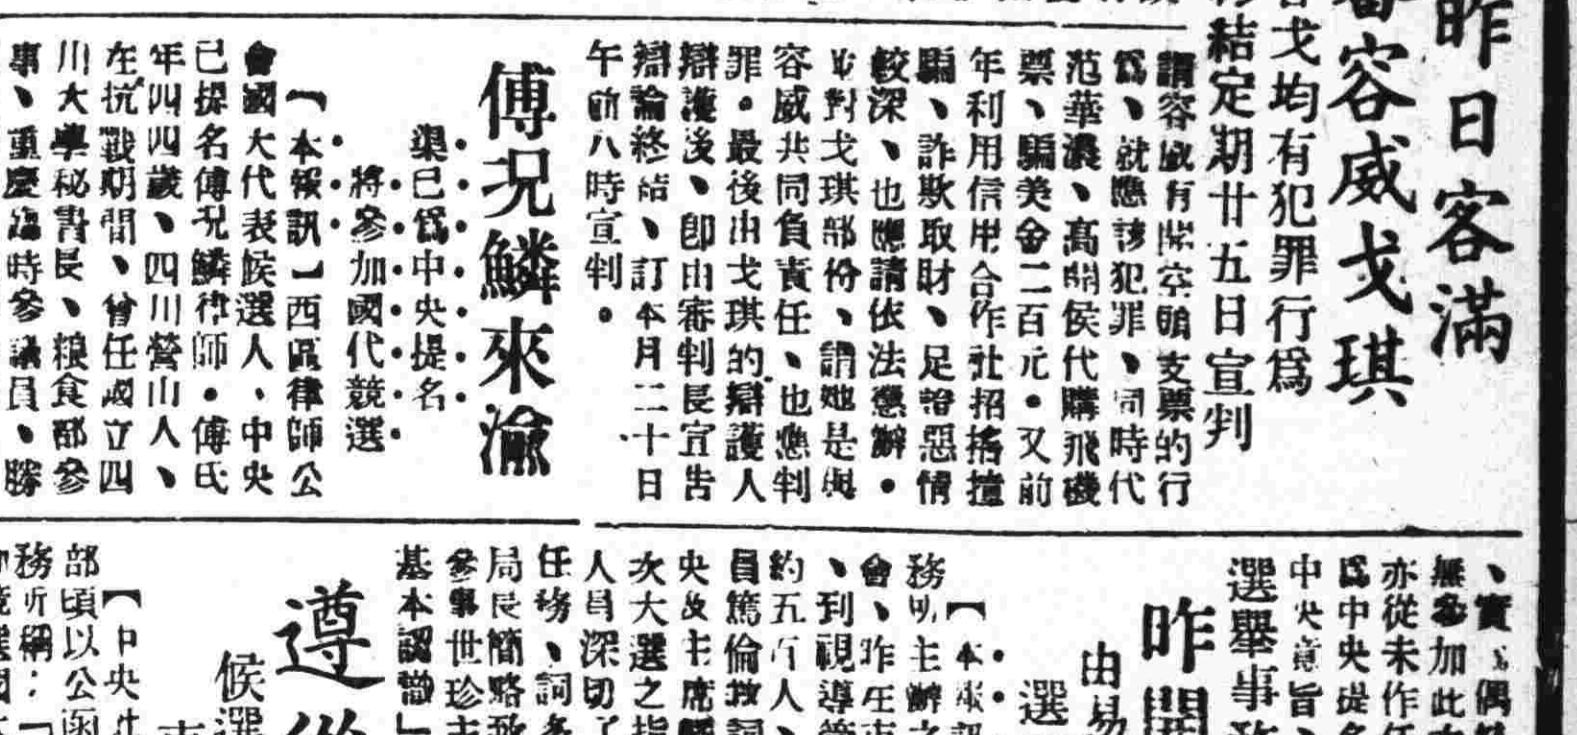 昨日客滿
容威戈琪
戈均有犯罪行爲
結定期廿五日宣判
謂容威有開空頭支票的行
爲、就應該犯罪、同時代
范華濃、高開侯代購飛機
票、騙美金二百元。又前
年利用信用合作社招搖撞
騙、詐欺取財、足證惡情
較深、也應請依法懲辦。
對戈琪部份、謂她是與
容威共同負責任、也應判
罪。最後由戈琪的辯護人
辯護後、卽由審判長宣告
辯論終結、訂本月二十日
午前八時宣判。
傅況鱗來渝
渠已爲中央提名
將參加國代競選
【本報訊】西區律師公
會國大代表候選人、中央
已提名傅況鱗律師。傅氏
年四四歲、四川營山人、
在抗戰期間、曾任國立四
川大學秘書長、粮食部參
事、重慶臨時參議員、勝
、實
無參加此
亦從未作任
爲中央提名
中央意旨、
選舉事務
昨開
由易
選
【本報訊
務所主辦之
會、昨在
、到視導
約五百人、
員篤倫致詞
央及主席
次大選之指
人員深切了
任務、詞
局長簡略致
參事世珍主
基本認識」
遵從
候選
【中央社
部頃以公函
務所稱：「